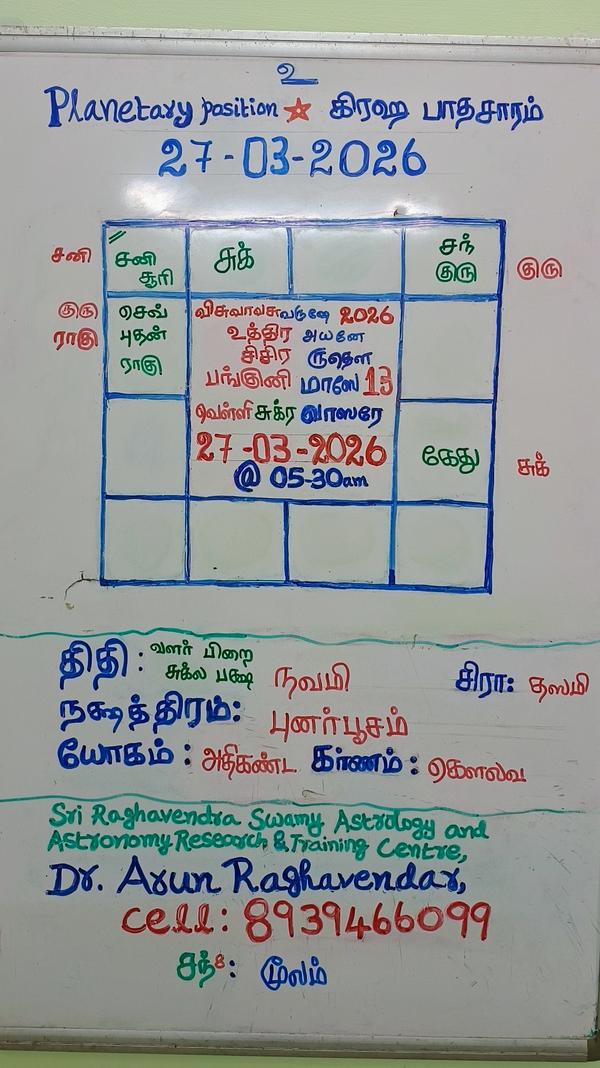 உ
Planetary position ☆ கிரஹ பாதசாரம்
27-03-2026
சனி
சனி
சூரி
சுக்
சந்
குரு
குரு
குரு
ராகு
செவ்
புதன்
ராகு
விசுவாவசுவருஷே 2026
உத்திர அயனே
சிசிர ருதௌ
பங்குனி மாஸே 13
வெள்ளி சுக்ர வாஸரே
27-03-2026
@ 05-30am
கேது
சுக்
திதி : வளர் பிறை
சுக்ல பக்ஷ நவமி சிரா: தஸமி
நக்ஷத்திரம்: புனர்பூசம்
யோகம் : அதிகண்ட கர்ணம் : கௌலவ
Sri Raghavendra Swamy Astrology and
Astronomy Research & Training Centre,
Dr. Arun Raghavendar,
cell: 8939466099
சந்8: மூலம்